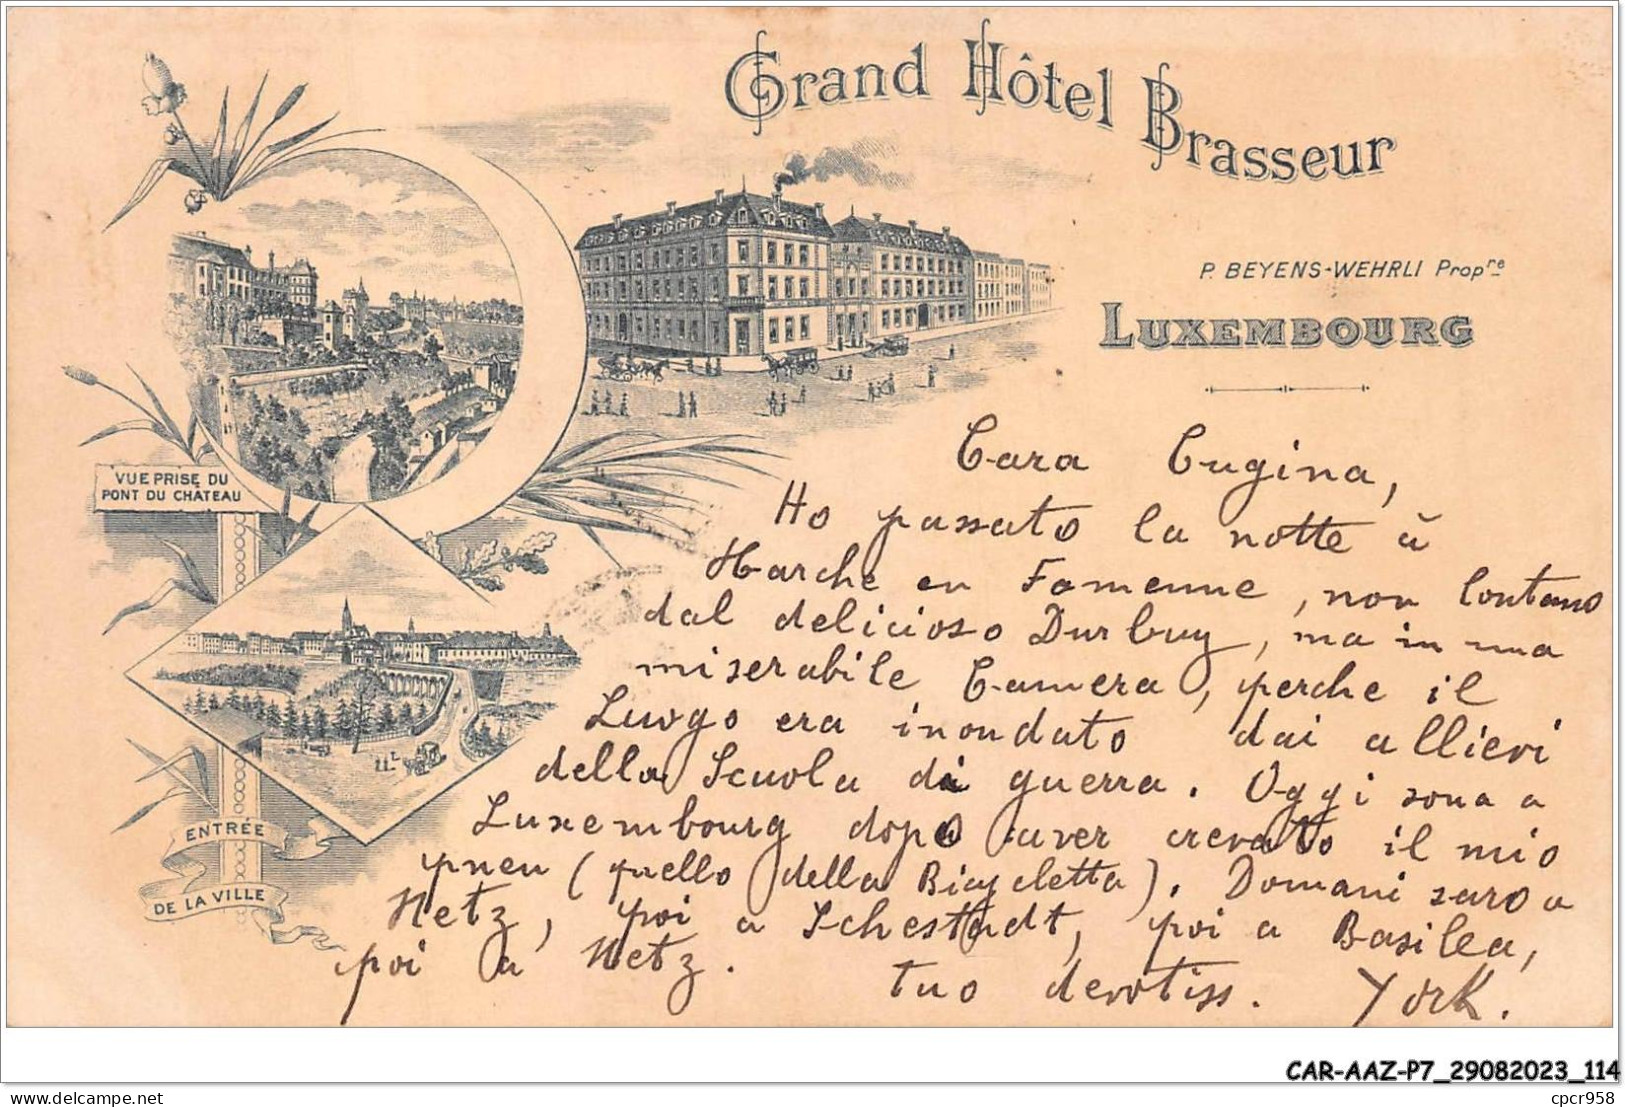 Grand Hôtel Brasseur
P. BEYENS-WEHRLI Propre
LUXEMBOURG
VUE PRISE DU
PONT DU CHÂTEAU
ENTRÉE
DE LA VILLE
Cara Cugina,
Ho passato la notte à
Marche en Famenne, non lontano
dal delicioso Durbuy, ma in una
miserabile Camera, perche il
Luogo era inondato dai allievi
della Scuola di guerra. Oggi sono a
Luxembourg dopo aver crevato il mio
pneu (quello della Bicycletta). Domani saro a
Metz, poi a Schestadt, poi a Basilea,
poi a Metz. tuo devotiss. York.
CAR-AAZ-P7_29082023_114
cpcr958